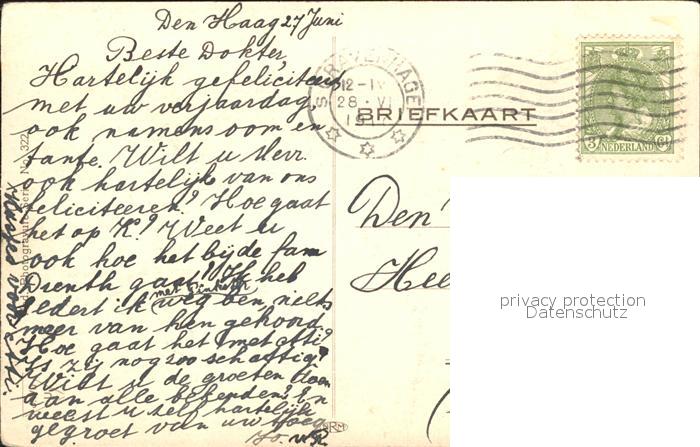 Den Haag 27 Juni
Beste Dokter,
Hartelijk gefeliciteerd
met uw verjaardag,
ook namens oom en
tante. Wilt u Mevr.
ook hartelijk van ons
feliciteeren? Hoe gaat
het op K? Weet u
ook hoe het bij de fam
Drenth gaat? Ik heb
sedert ik weg ben, niets
meer van hen gehoord.
Hoe gaat het met
Is zij nog zoo
Wilt u de groeten doen
aan alle bekenden? En
weest u zelf hartelijk
gegroet van uw
'S GRAVENHAGE
12-1V
28 VI
BRIEFKAART
3 Ct
NEDERLAND
Den
No. 322
privacy protection
Datenschutz